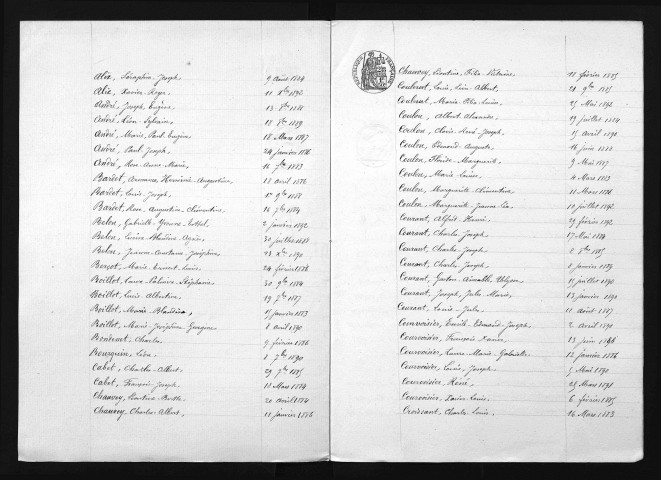 Alix, Séraphin Joseph 9 Août 1884
Alix, Xavier Roger 11 Xbre 1892
André, Joseph Eugène 13 8bre 1888
André, Léon Sylvain 12 8bre 1889
André, Marie Paul Eugène 18 Mars 1887
André, Paul Joseph 24 janvier 1886
André, Rose Anne Marie 16 7bre 1883
Bardot, Herminie Augustine 13 avril 1886
Bardot, Louis Joseph 1er 9bre 1888
Bardot, Rose Augustine Clémentine 16 7bre 1884
Belon, Gabrielle Yvonne 2 janvier 1892
Belon, Blandine 30 juillet
Belon, Jeanne Constance Joséphine 23 Xbre 1890
Marie Ernest Louis 24 février 1886
Boillot, Stéphanie 30 9bre 1884
Boillot, Louis Albertine 19 7bre 1887
Boillot, Marie Blandine 15 janvier 1883
Boillot, Marie Joséphine Georgine 8 avril 1890
Charles 9 février 1886
Bourquin, Léon 8 7bre 1890
Cabet, Charles Albert 29 7bre 1885
Cabet, François Joseph 11 Mars 1884
Chauvey, Léontine Berthe 20 avril 1884
Chauvey, Charles Albert 11 janvier 1886
RÉPUBLIQUE FRANÇAISE
Chauvey, Léontine 12 février 1885
Louis Léon Albert 21 9bre 1885
Marie 25 Mai 1892
Coulon, Albert 19 juillet 1884
Coulon, Clovis René Joseph 15 avril 1890
Coulon, Edmond Auguste 16 juin 1888
Coulon, Marguerite 9 Mai 1887
Coulon, Marie Louise 4 Mars 1883
Coulon, Marguerite Clémentine 11 Mars 1886
Coulon, Marguerite Jeanne 10 juillet 1892
Courant, Alfred Henri 29 février 1892
Courant, Charles Joseph 17 Mai
Courant, Charles Joseph 2 8bre 1885
Courant, Charles Joseph 8 janvier 1889
Courant, Gaston Aimable 11 juillet 1890
Courant, Joseph Jules Marie 13 janvier 1890
Courant, Louis Jules 11 août 1887
Courvoisier, Emile Edmond Joseph 2 avril 1890
Courvoisier, François Xavier 13 juin 1886
Courvoisier, Jeanne Marie Gabrielle 12 janvier 1886
Courvoisier, Louis Joseph 5 Mai 1890
Courvoisier, René 25 Mars 1891
Courvoisier, Xavier Louis 6 février 1885
Croissant, Charles Louis 16 Mars 1883